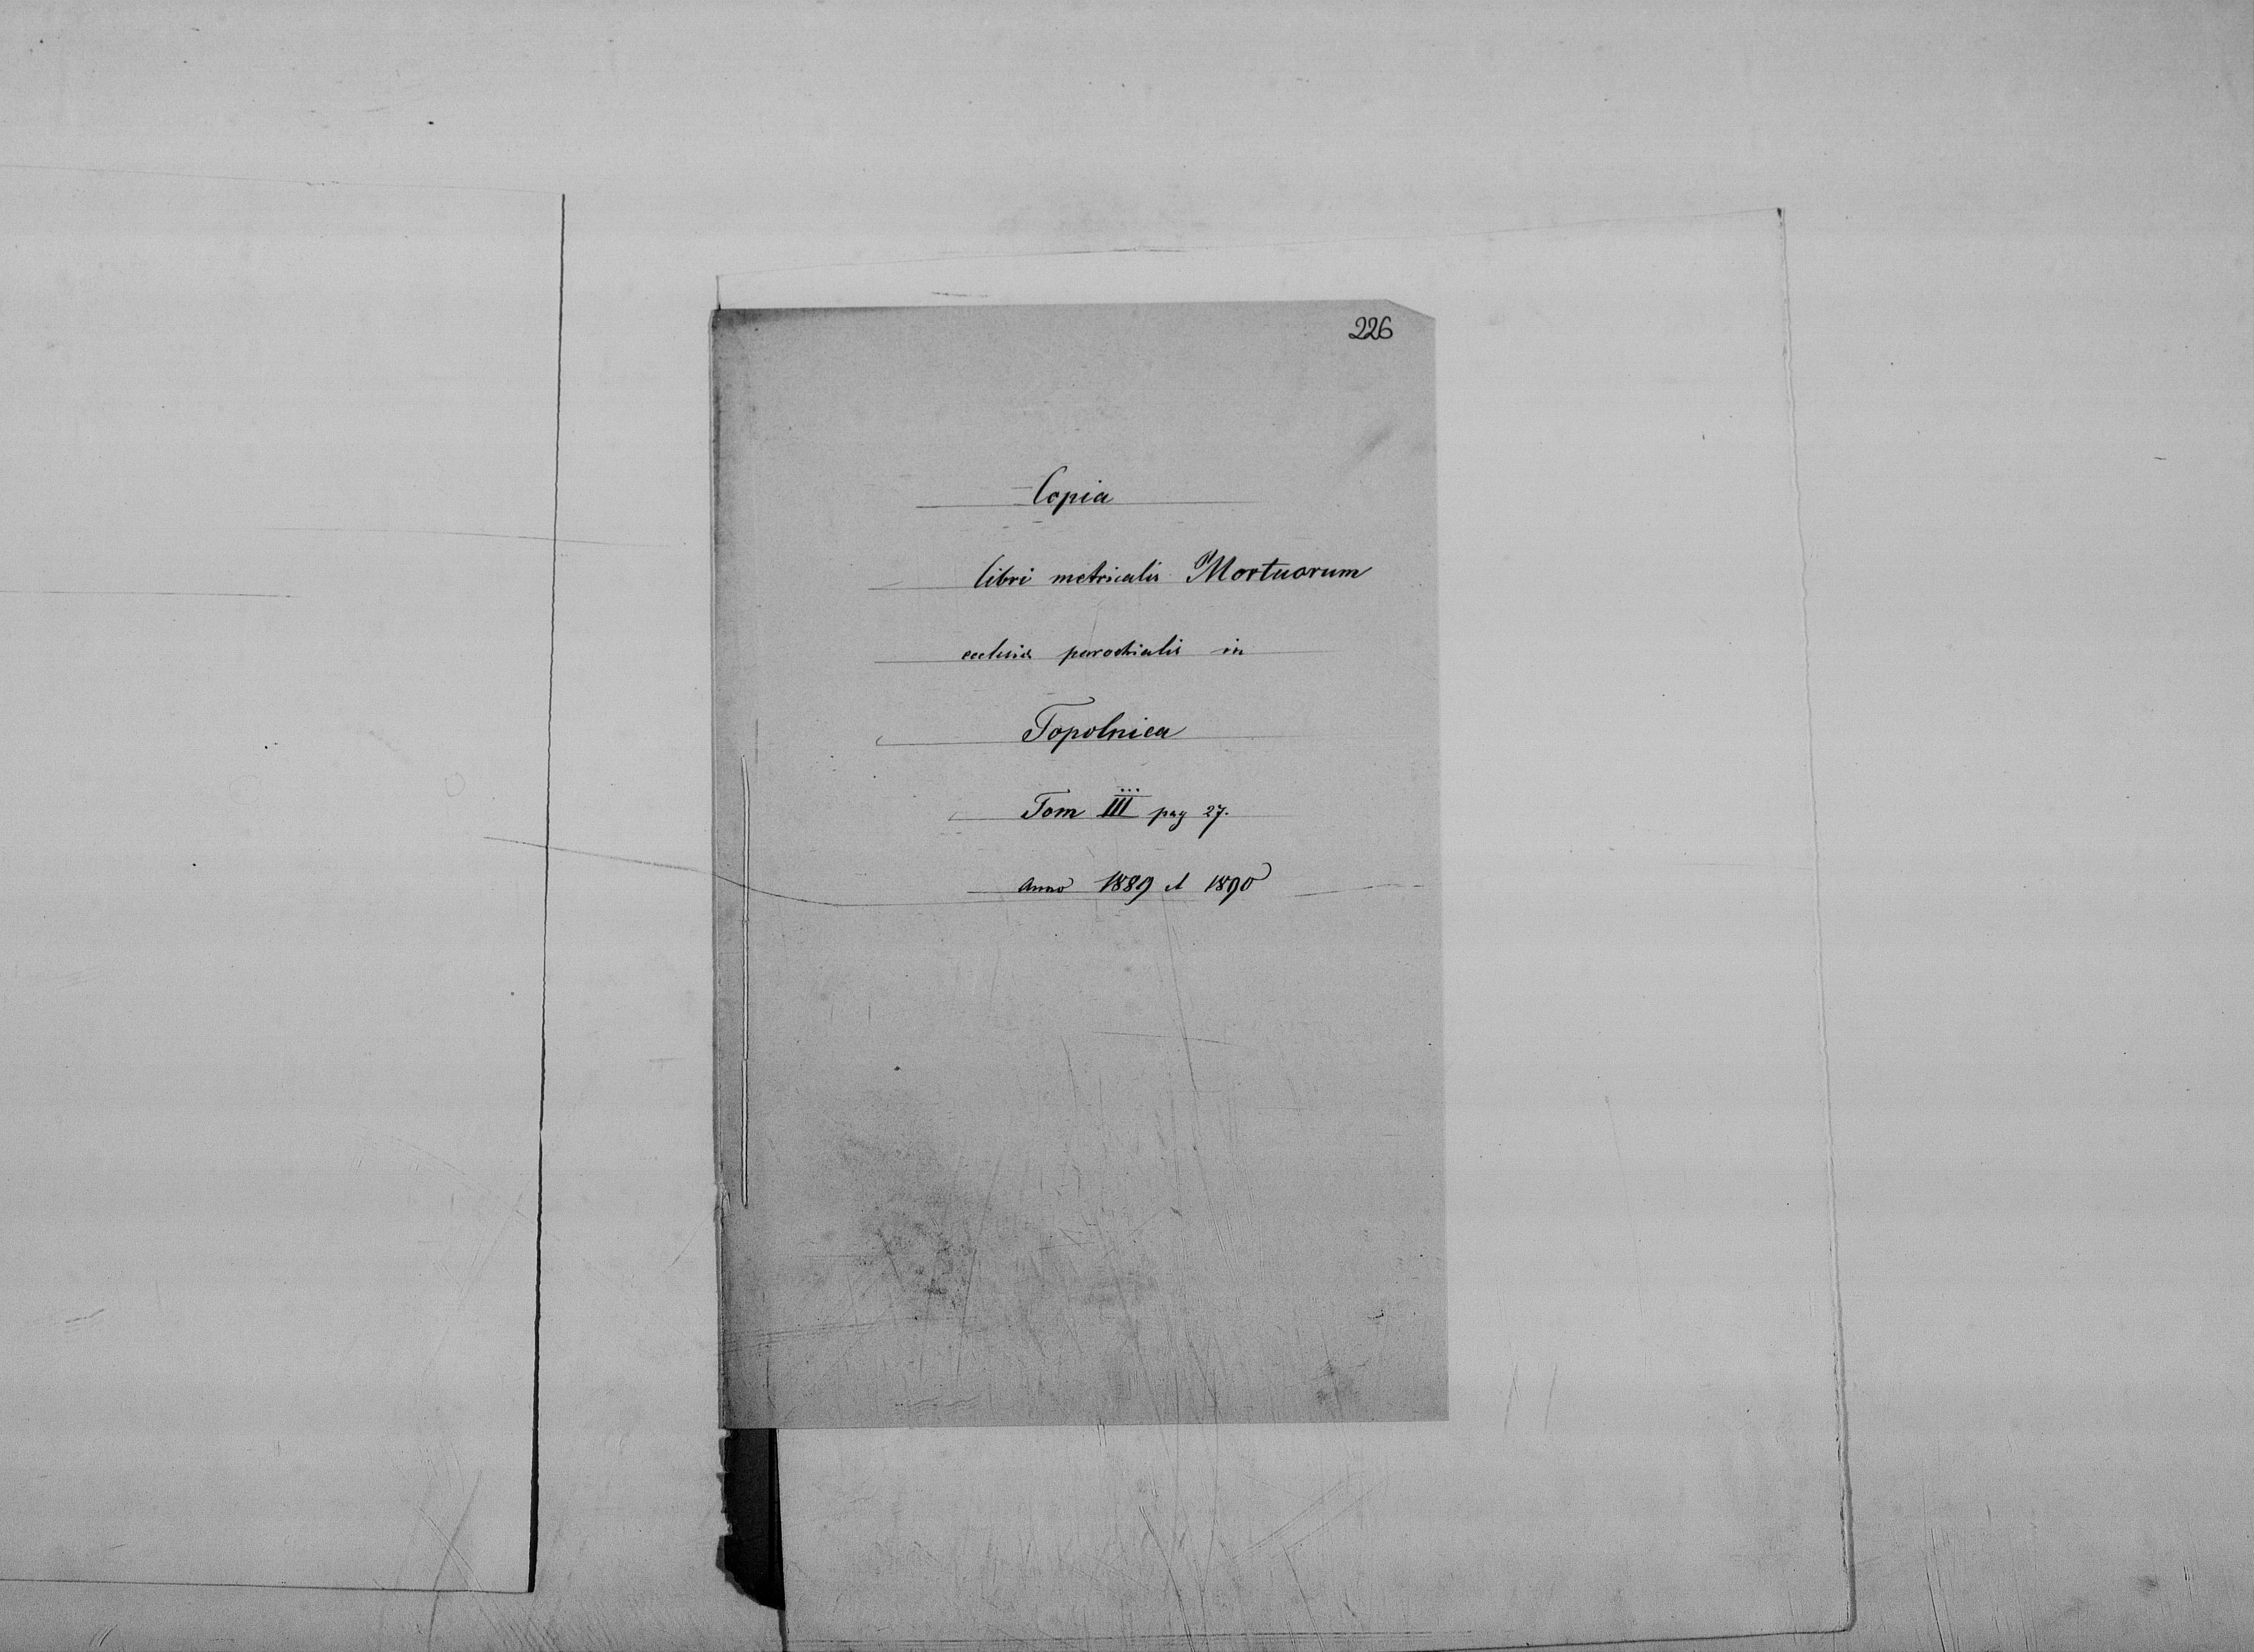 226
Copia
libri metricalis Mortuorum
ecclesiæ parochialis in
Topolnica
Tom III pag 27.
Anno 1889 et 1890